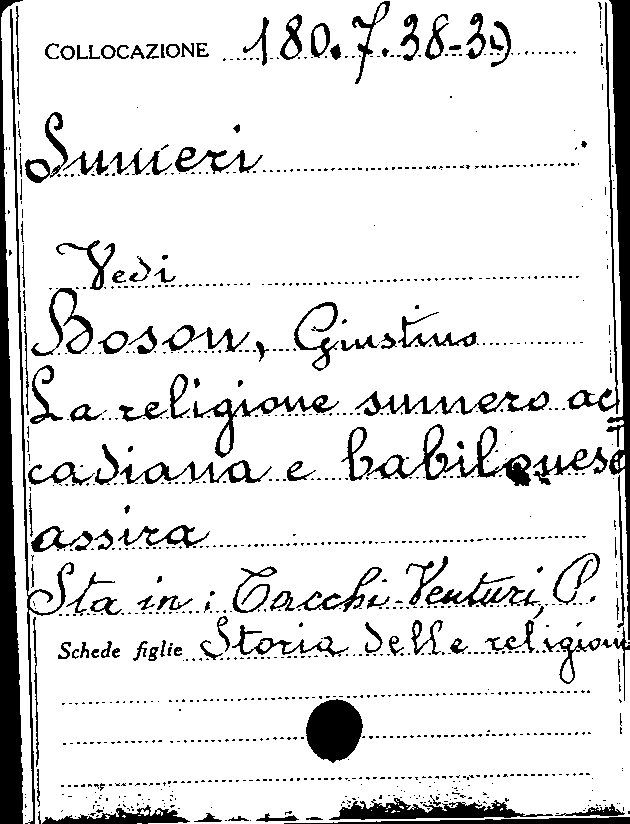 COLLOCAZIONE 180.7.38-39
Sumeri
Vedi
Boson, Giustino
La religione sumero ac=
cadiana e babilonese
assira
Sta in: Tacchi-Venturi, P.
Schede figlie Storia delle religioni